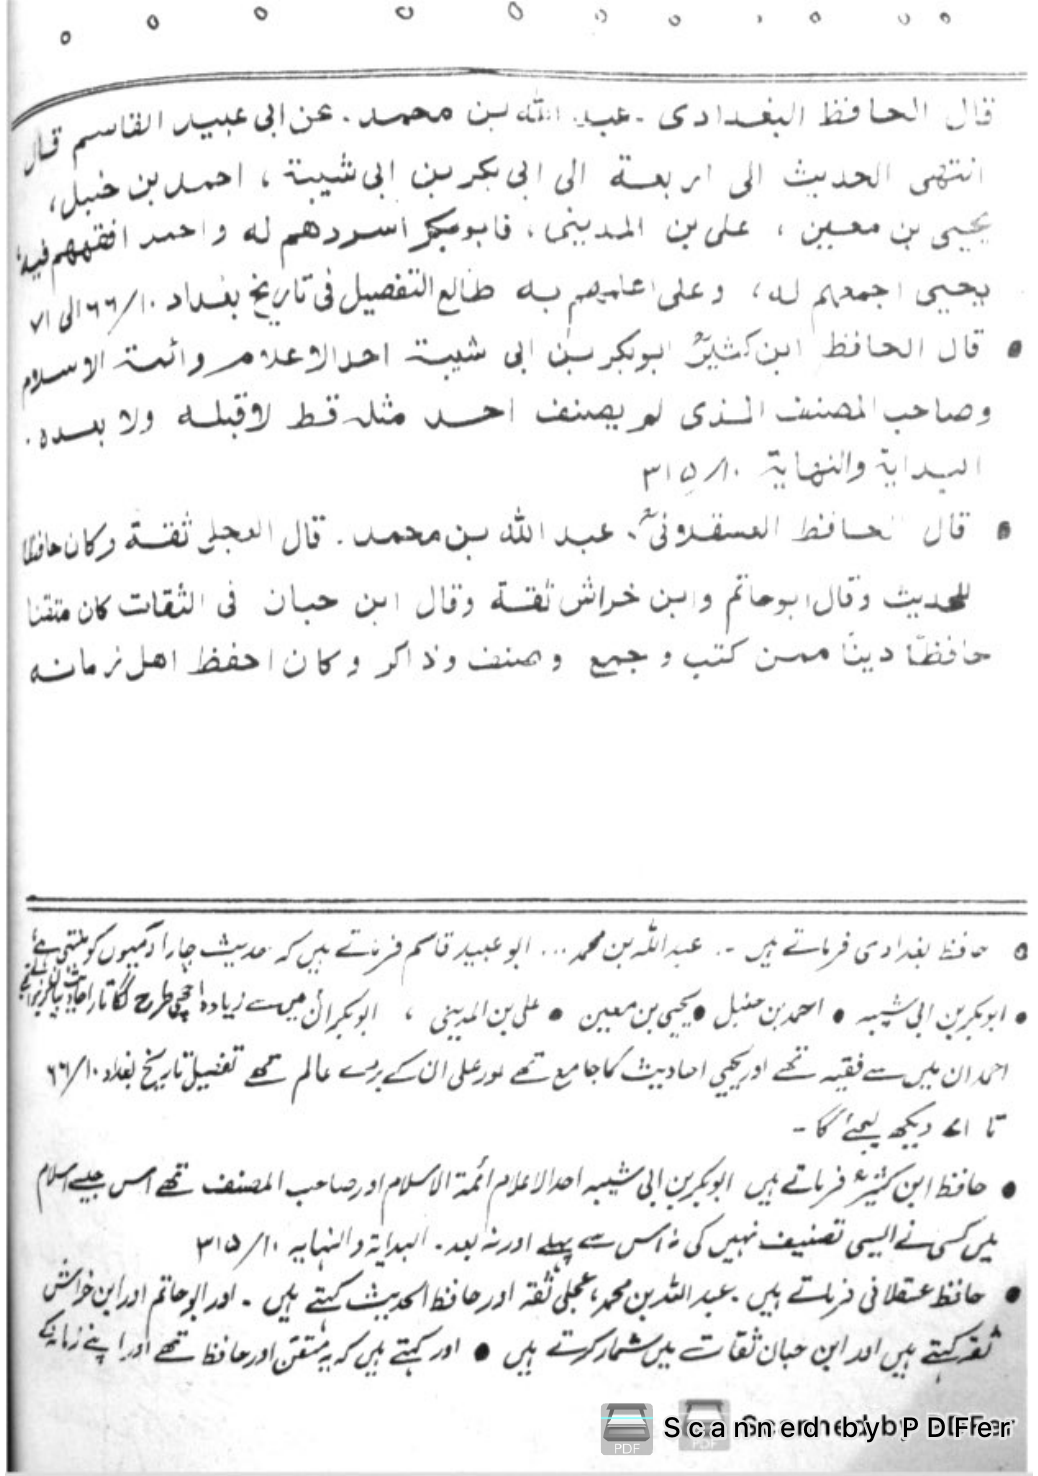 قال الحافظ البغدادی ـ عبد الله بن محمد ـ عن ابی عبید القاسم قال
انتھی الحدیث الی اربعة الی ابی بکر بن ابی شیبة ، احمد بن حنبل ،
یحیی بن معین ، علی بن المدینی ، فابوبکر اسردھم له واحمد افقھھم فیه ،
یحیی اجمعھم له ، وعلی اعلمھم به طالع التفصیل فی تاریخ بغداد ۱۰/۶۶ الی ۷۱
● قال الحافظ ابن کثیرؒ ابوبکر بن ابی شیبة احد الاعلام وائمة الاسلام
وصاحب المصنف الذی لم یصنف احد مثله قط لا قبله ولا بعده ۔
البدایة والنھایة ۱۰/۳۱۵
● قال الحافظ العسقلانیؒ ، عبد الله بن محمد ۔ قال العجلی ثقة وکان حافظا
للحدیث وقال ابوحاتم وابن خراش ثقة وقال ابن حبان فی الثقات کان متقنا
حافظًا دینًا ممن کتب و جمع وصنف وذاکر وکان احفظ اھل زمانه
● حافظ بغدادی فرماتے ہیں ۔۔ عبداللہ بن محمد ... ابو عبید قاسم فرماتے ہیں کہ حدیث چار آدمیوں کو منتہی ہے
● ابوبکر بن ابی شیبہ ● احمد بن حنبل ● یحیی بن معین ● علی بن المدینی ، ابوبکر ان میں سے زیادہ اچھی طرح لگاتار احادیث بیان کرنیوالے تھے
احمد ان میں سے فقیہ تھے اور یحیی احادیث کا جامع تھے اور علی ان کے بڑے عالم تھے تفصیل تاریخ بغداد ۱۰/۶۶
تا ۷۱ دیکھ لیجئے گا ۔
● حافظ ابن کثیرؒ فرماتے ہیں ابوبکر بن ابی شیبہ احد الاعلام ائمة الاسلام اور صاحب المصنف تھے اس جیسے اسلام
میں کسی نے ایسی تصنیف نہیں کی نہ اس سے پہلے اور نہ بعد ۔ البدایة والنہایه ۱۰/۳۱۵
● حافظ عسقلانی فرماتے ہیں ۔ عبد اللہ بن محمد ، عجلی ثقہ اور حافظ الحدیث کہتے ہیں ۔ اور ابو حاتم اور ابن خراش
ثقہ کہتے ہیں اور ابن حبان ثقات میں شمار کرتے ہیں ● اور کہتے ہیں کہ یہ متقن اور حافظ تھے اور اپنے زمانہ کے
Scanned by PDFFer
PDF